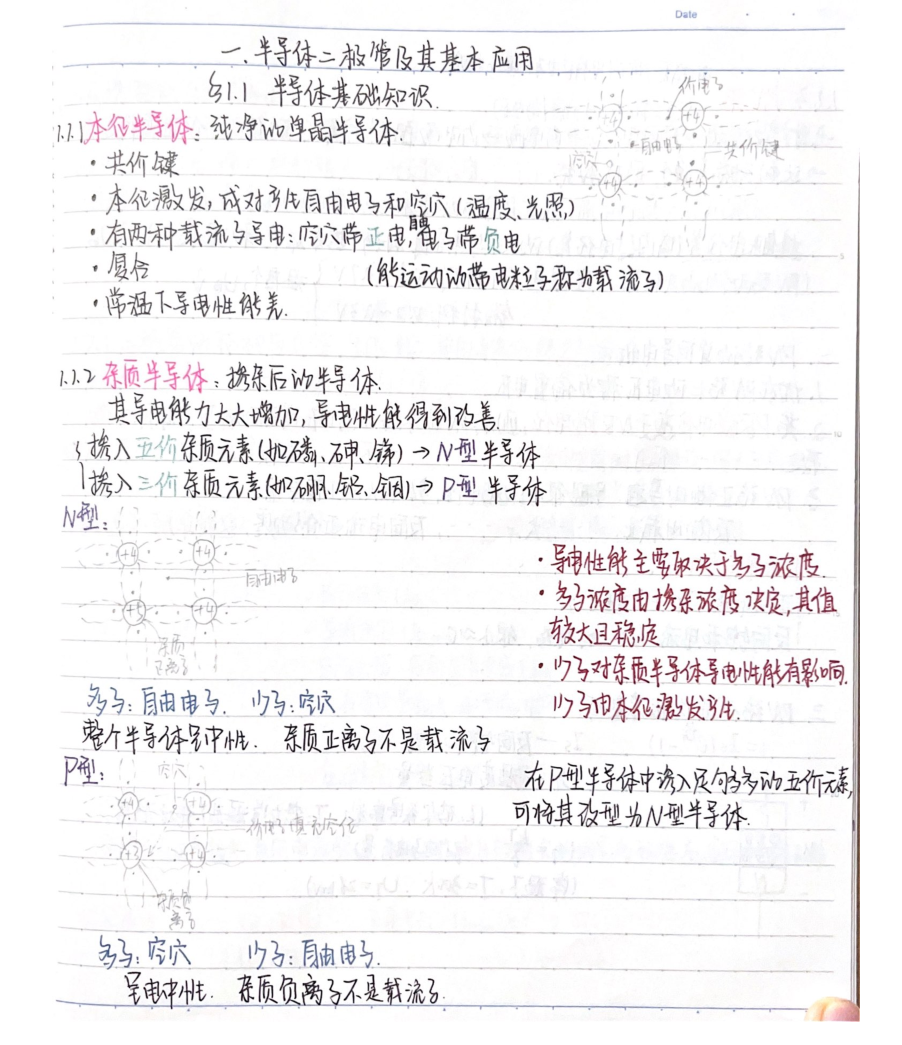 Date
一.半导体二极管及其基本应用
§1.1 半导体基础知识.
1.1.1 本征半导体:纯净的单晶半导体.
价电子
+4 +4
空穴 自由电子 共价键
+4 +4
·共价键
·本征激发,成对产生自由电子和空穴(温度、光照)
·有两种载流子导电:空穴带正电,自由电子带负电
·复合 (能运动的带电粒子称为载流子)
·常温下导电性能差.
1.1.2 杂质半导体:掺杂后的半导体.
其导电能力大大增加,导电性能得到改善.
掺入五价杂质元素(如磷、砷、锑)→N型半导体
掺入三价杂质元素(如硼、铝、铟)→P型半导体
N型:
+4 +4
自由电子
+5 +4
杂质
正离子
多子:自由电子. 少子:空穴
整个半导体呈中性. 杂质正离子不是载流子
·导电性能主要取决于多子浓度.
·多子浓度由掺杂浓度决定,其值
较大且稳定
·少子对杂质半导体导电性能有影响.
少子由本征激发产生.
P型:
空穴
+4 +4
价电子填充空位
+3 +4
杂质负
离子
在P型半导体中掺入足够多的五价元素,
可将其改型为N型半导体.
多子:空穴 少子:自由电子.
呈电中性. 杂质负离子不是载流子.